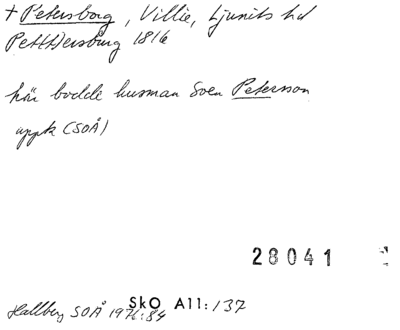 + Petersborg, Villie, Ljunits hd
Pett(t)ersburg 1816
här bodde husman Sven Petersson
uppk (SOÅ)
28041
SkO A11:137
Hallberg SOÅ 1976:84